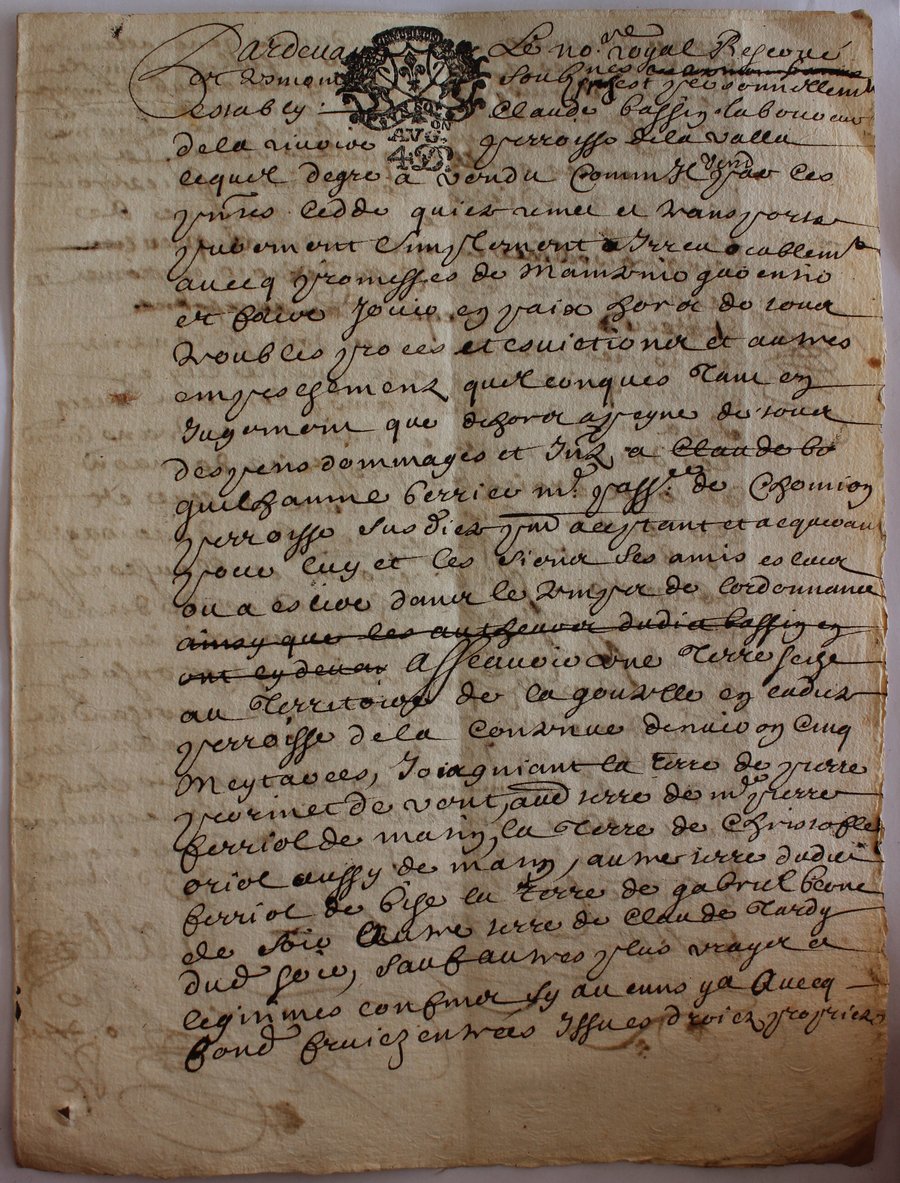 Pardevant Le no.re royal Reserué
et soubz.nes
estably Claude bassin laboureur
LYON
AVG. ON
4 D.
de la riuoire perroisse de la valla
lequel de gre a vendu Comm Il vend par ces
pntes cedde quicte remet et transporte
purement simplement et Irreuocablemt
auecq promesses de maintenir garentir
et faire Jouir en paix hors de tous
troubles proces et esuictions et autres
empeschements quelconques tant en
Jugement que dehors a peyne de tous
despens dommages et Intz a Claude bo
guilhaume ferrier mr. pass.r de Chomiou
perroisse susdicte pnt aceptant et acquerant
pour luy et les siens ses amis eslus
ou a eslire dans le temps de lordonnance
ainsy que les autheurs dudict bassin en
ont cy deuant Asseauoir une Terre size
au Territoire de la gouztte en ladicte
perroisse de la contenue denuiron cinq
Meytarees, Joiagniant la terre de pierre
prorinet de vent, aud terre de mr pierre
ferriol de matin, la terre de Christofle
oriol aussy de matin, autre terre dudict
ferriol de bise la terre de gabriel
de soir autre terre de Claude Tardy
dud soir, sauf autres plus vrayes et
legitimes confins sy aucuns y a Auecq
fond fruictz entrées Issues droictz proprietes